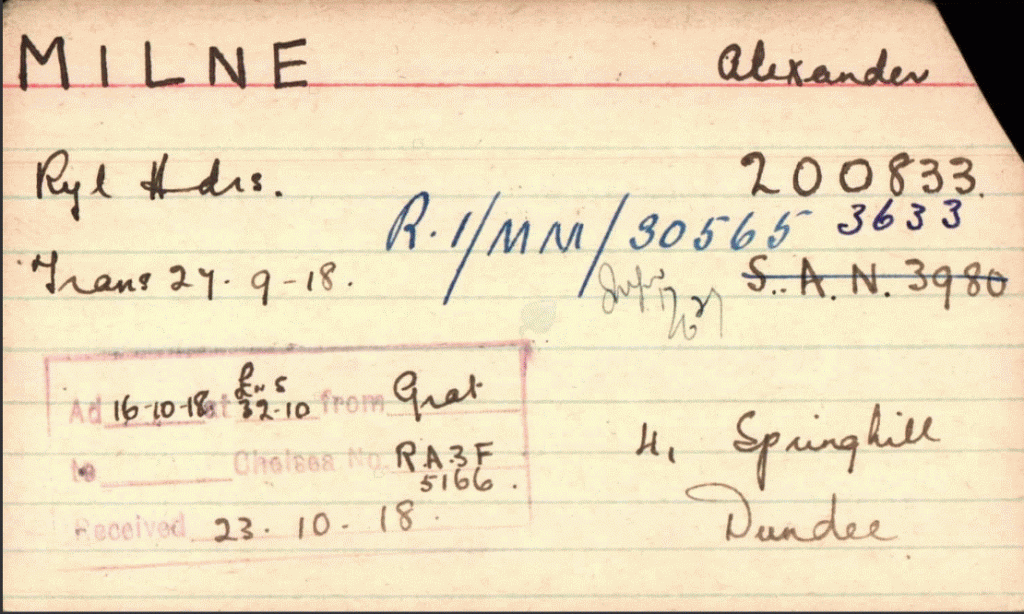 MILNE Alexander
Ryl Hdrs. 200833.
R.1/MM/30565 3633
Trans 27-9-18. S.A.N. 3980
17/6/27
£ s
Ad 16-10-18 at 32-10 from Grat
to Chelsea No. RA3F
5166.
4, Springhill
Received 23.10-18.
Dundee